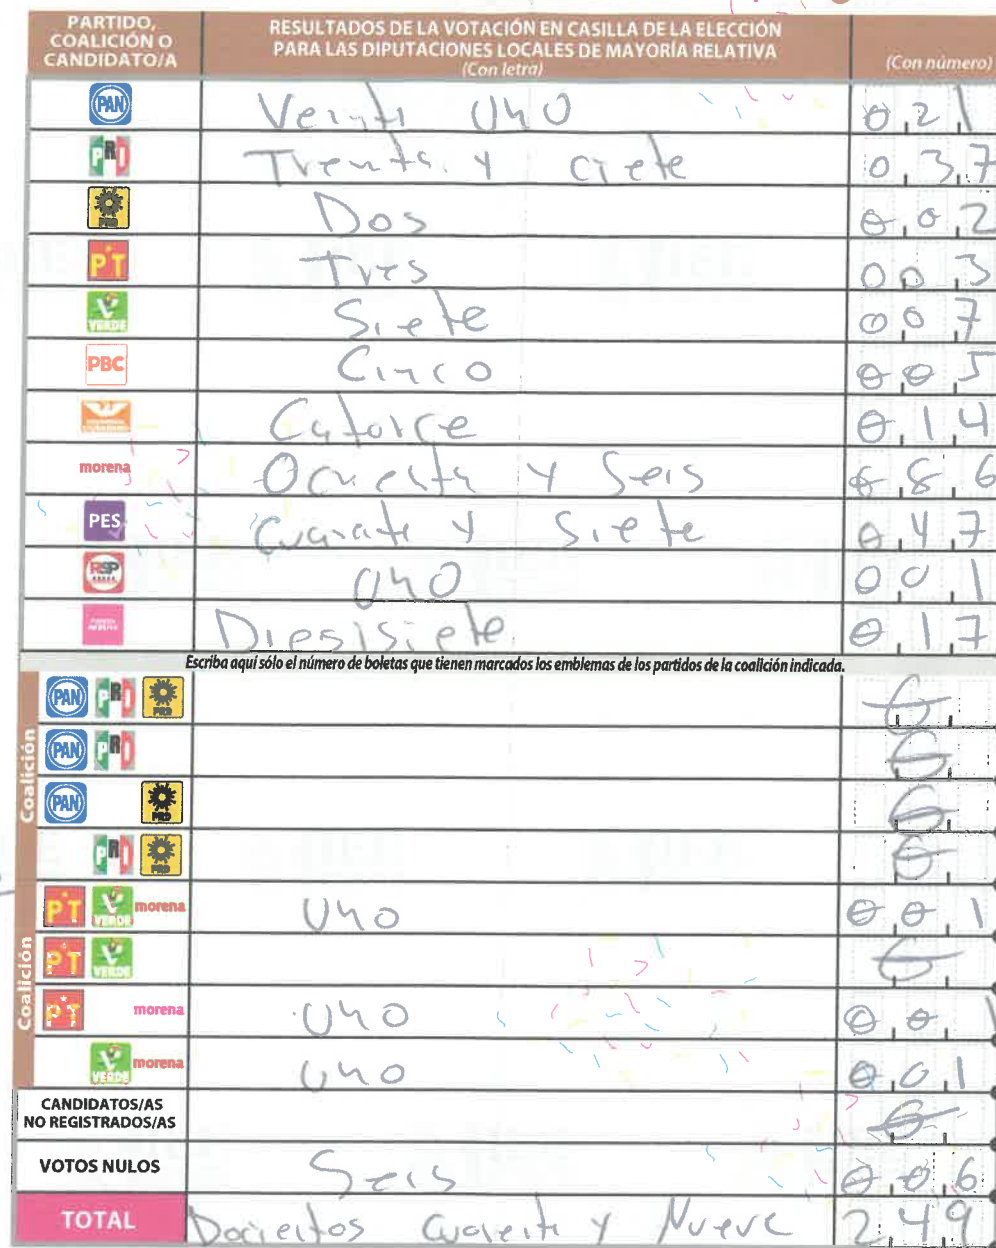 PARTIDO, COALICIÓN O CANDIDATO/A
RESULTADOS DE LA VOTACIÓN EN CASILLA DE LA ELECCIÓN PARA LAS DIPUTACIONES LOCALES DE MAYORÍA RELATIVA
(Con letra)
(Con número)
PAN Veinti Uno 021
PRI Trenta y ciete 037
PRD Dos 002
PT Tres 003
VERDE Siete 007
PBC Cinco 005
Catorce 014
morena Ochenta y Seis 086
PES Cuarenta y Siete 047
RSP Uno 001
Diesisiete 017
Escriba aquí sólo el número de boletas que tienen marcados los emblemas de los partidos de la coalición indicada.
Coalición
PAN PRI PRD 0
PAN PRI 0
PAN PRD 0
PRI PRD 0
Coalición
PT VERDE morena Uno 001
PT VERDE 0
PT morena Uno 001
VERDE morena Uno 001
CANDIDATOS/AS NO REGISTRADOS/AS 0
VOTOS NULOS Seis 006
TOTAL Docientos Cuarenta y Nueve 249